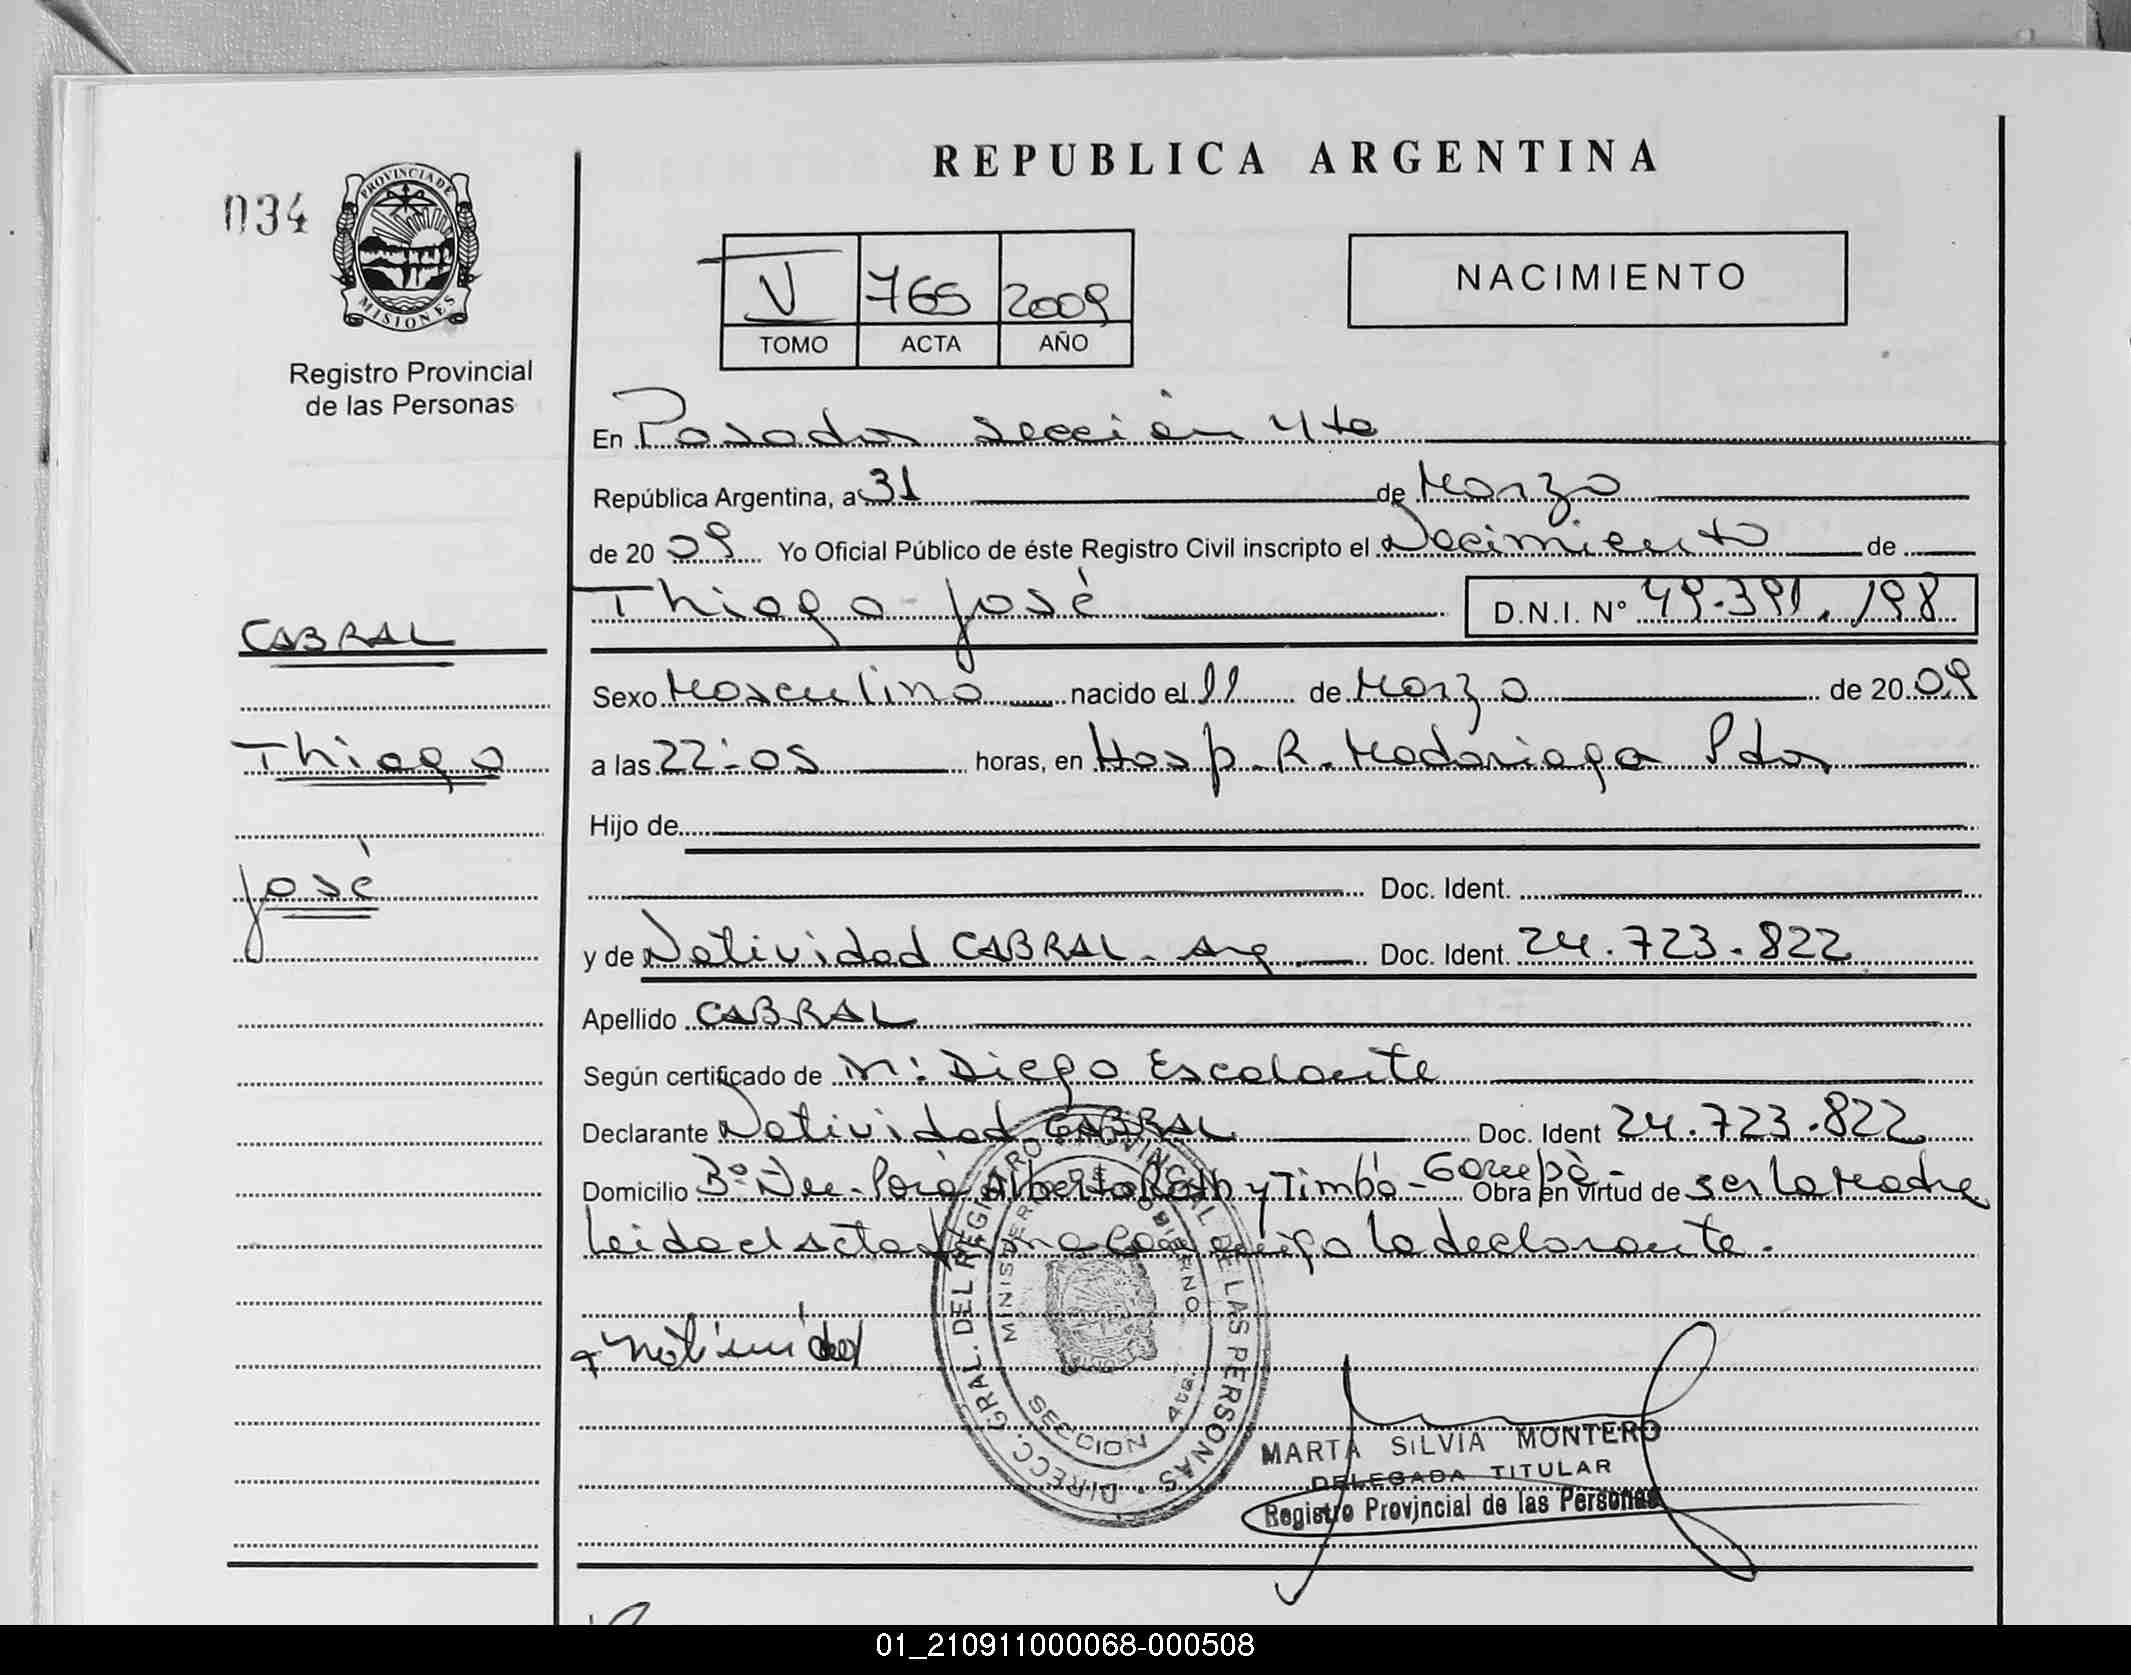 REPUBLICA ARGENTINA
034
PROVINCIA DE
MISIONES
Registro Provincial
de las Personas
V 765 2009
TOMO ACTA AÑO
NACIMIENTO
En Posadas sección 4ta
República Argentina, a 31 de Marzo
de 2009 Yo Oficial Público de éste Registro Civil inscripto el Nacimiento de
Thiago José D.N.I. Nº 49.391.198
CABRAL
Thiago
José
Sexo Masculino nacido el 11 de Marzo de 2009
a las 22:05 horas, en Hosp. R. Madariaga Pdas
Hijo de
Doc. Ident.
y de Natividad CABRAL. Arg. Doc. Ident. 24.723.822
Apellido CABRAL
Según certificado de M: Diego Escalante
Declarante Natividad CABRAL Doc. Ident 24.723.822
Domicilio Bº Alberto Roth y Timbó - Garupá - Obra en virtud de ser la Madre
Leida el acta firma conmigo la declarante.
Natividad
DIRECC. GRAL. DEL REGISTRO PROVINCIAL DE LAS PERSONAS
MINISTERIO DE GOBIERNO
SECCION 4ta.
MARTA SILVIA MONTERO
DELEGADA TITULAR
Registro Provincial de las Personas
01_210911000068-000508